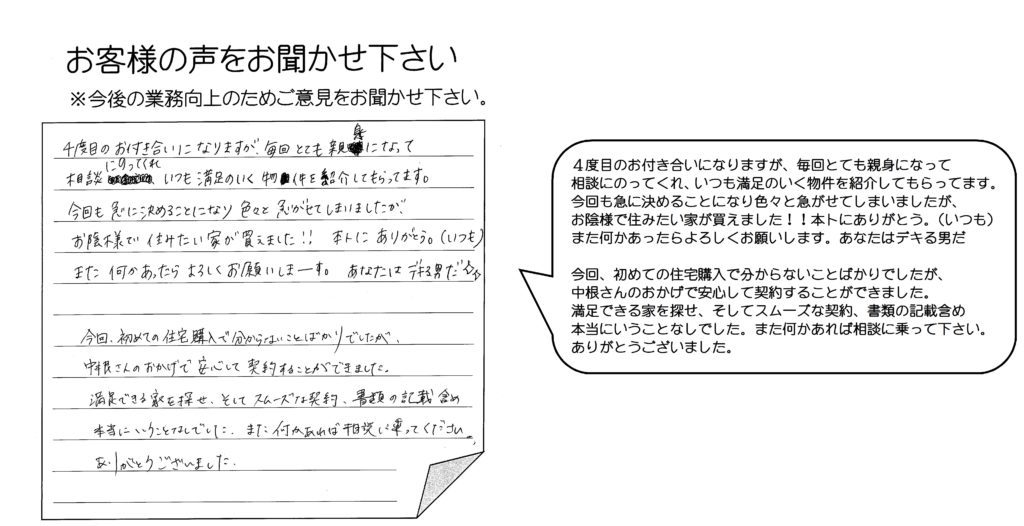 お客様の声をお聞かせ下さい
※今後の業務向上のためご意見をお聞かせ下さい。
4度目のお付き合いになりますが、毎回とても親身になって
相談にのってくれ いつも満足のいく物件を紹介してもらってます。
今回も急に決めることになり色々と急がせてしまいましたが、
お陰様で住みたい家が買えました!! 本トにありがとう。(いつも)
また何かあったらよろしくお願いしまーす。 あなたはデキる男だ☆☆
今回、初めての住宅購入で分からないことばかりでしたが、
中根さんのおかげで安心して契約することができました。
満足できる家を探せ、そしてスムーズな契約、書類の記載含め
本当にいうことなしでした。また何かあれば相談に乗ってください。
ありがとうございました。
４度目のお付き合いになりますが、毎回とても親身になって
相談にのってくれ、いつも満足のいく物件を紹介してもらってます。
今回も急に決めることになり色々と急がせてしまいましたが、
お陰様で住みたい家が買えました！！本トにありがとう。（いつも）
また何かあったらよろしくお願いします。あなたはデキる男だ
今回、初めての住宅購入で分からないことばかりでしたが、
中根さんのおかげで安心して契約することができました。
満足できる家を探せ、そしてスムーズな契約、書類の記載含め
本当にいうことなしでした。また何かあれば相談に乗って下さい。
ありがとうございました。